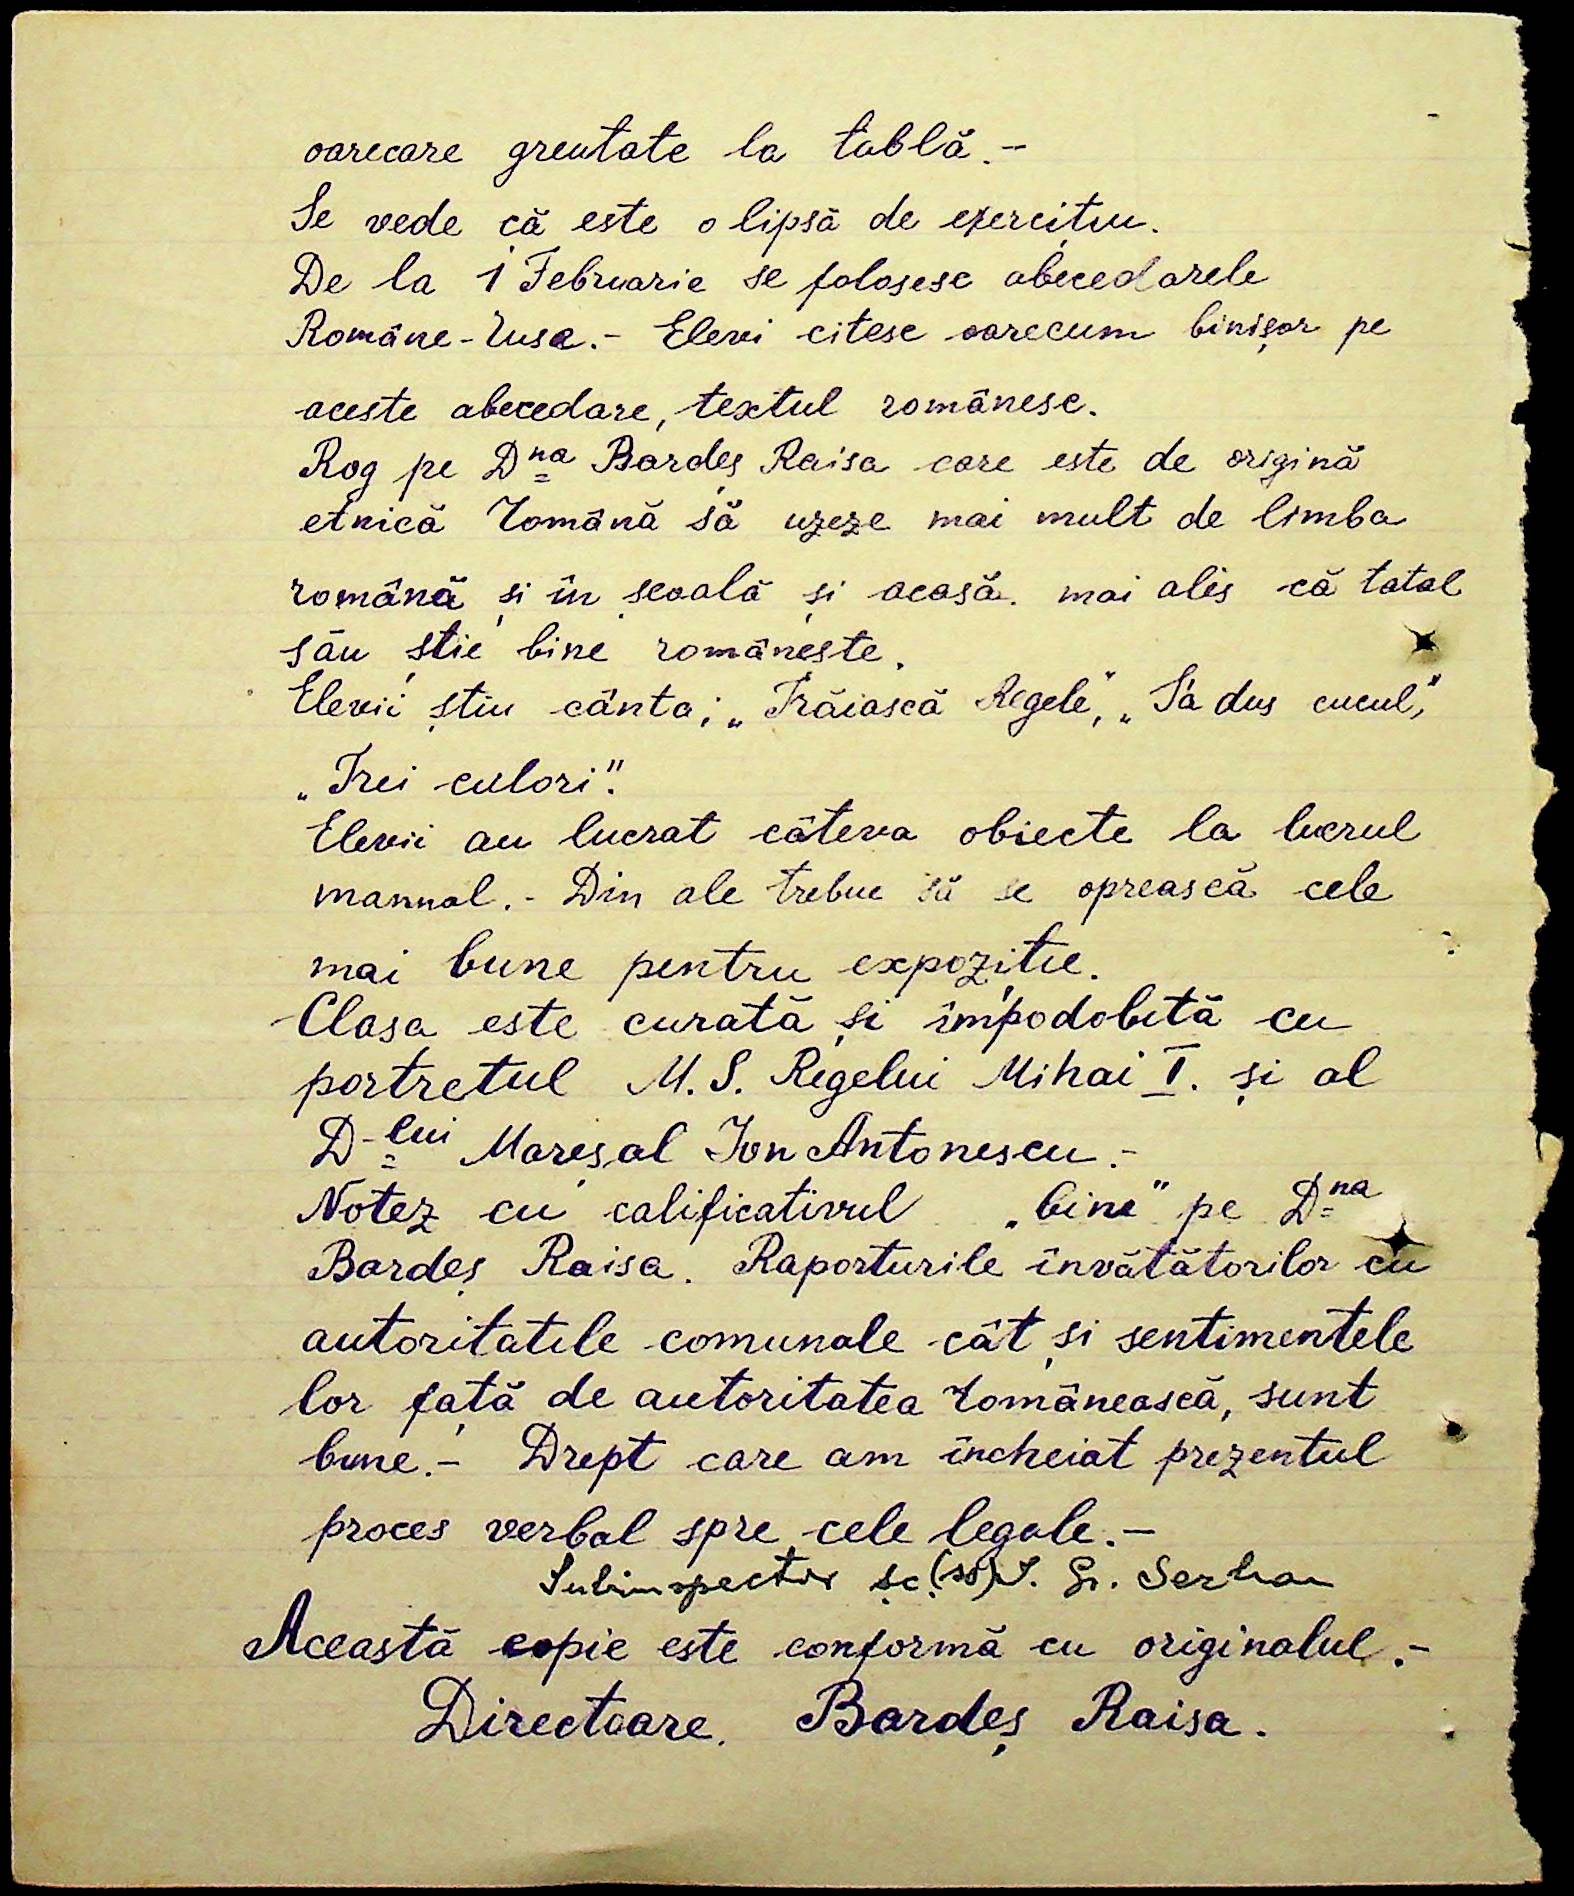 oarecare greutate la tablă.-
Se vede că este o lipsă de exercițiu.
De la 1 Februarie se folosesc abecedarele
Române-Ruse.- Elevi citesc oarecum binișor pe
aceste abecedare, textul românesc.
Rog pe Dna Bardeș Raisa care este de origină
etnică Română să uzeze mai mult de limba
română și în școală și acasă. mai ales că tatal
său știe bine românește.
Elevii știu cânta; „Trăiască Regele”, „S'a dus cucul,”
„Trei culori”.
Elevii au lucrat câteva obiecte la lucrul
manual.- Din ale trebue să se oprească cele
mai bune pentru expoziție.
Clasa este curată și împodobită cu
portretul M.S. Regelui Mihai I. și al
D-lui Mareșal Ion Antonescu.-
Notez cu calificativul „bine” pe Dna
Bardeș Raisa. Raporturile învătătorilor cu
autoritatile comunale cât și sentimentele
lor față de autoritatea Românească, sunt
bune.- Drept care am încheiat prezentul
proces verbal spre cele legale.-
Subinspector șc. (ss) Gr. Serban
Această copie este conformă cu originalul.-
Directoare. Bardeș Raisa.